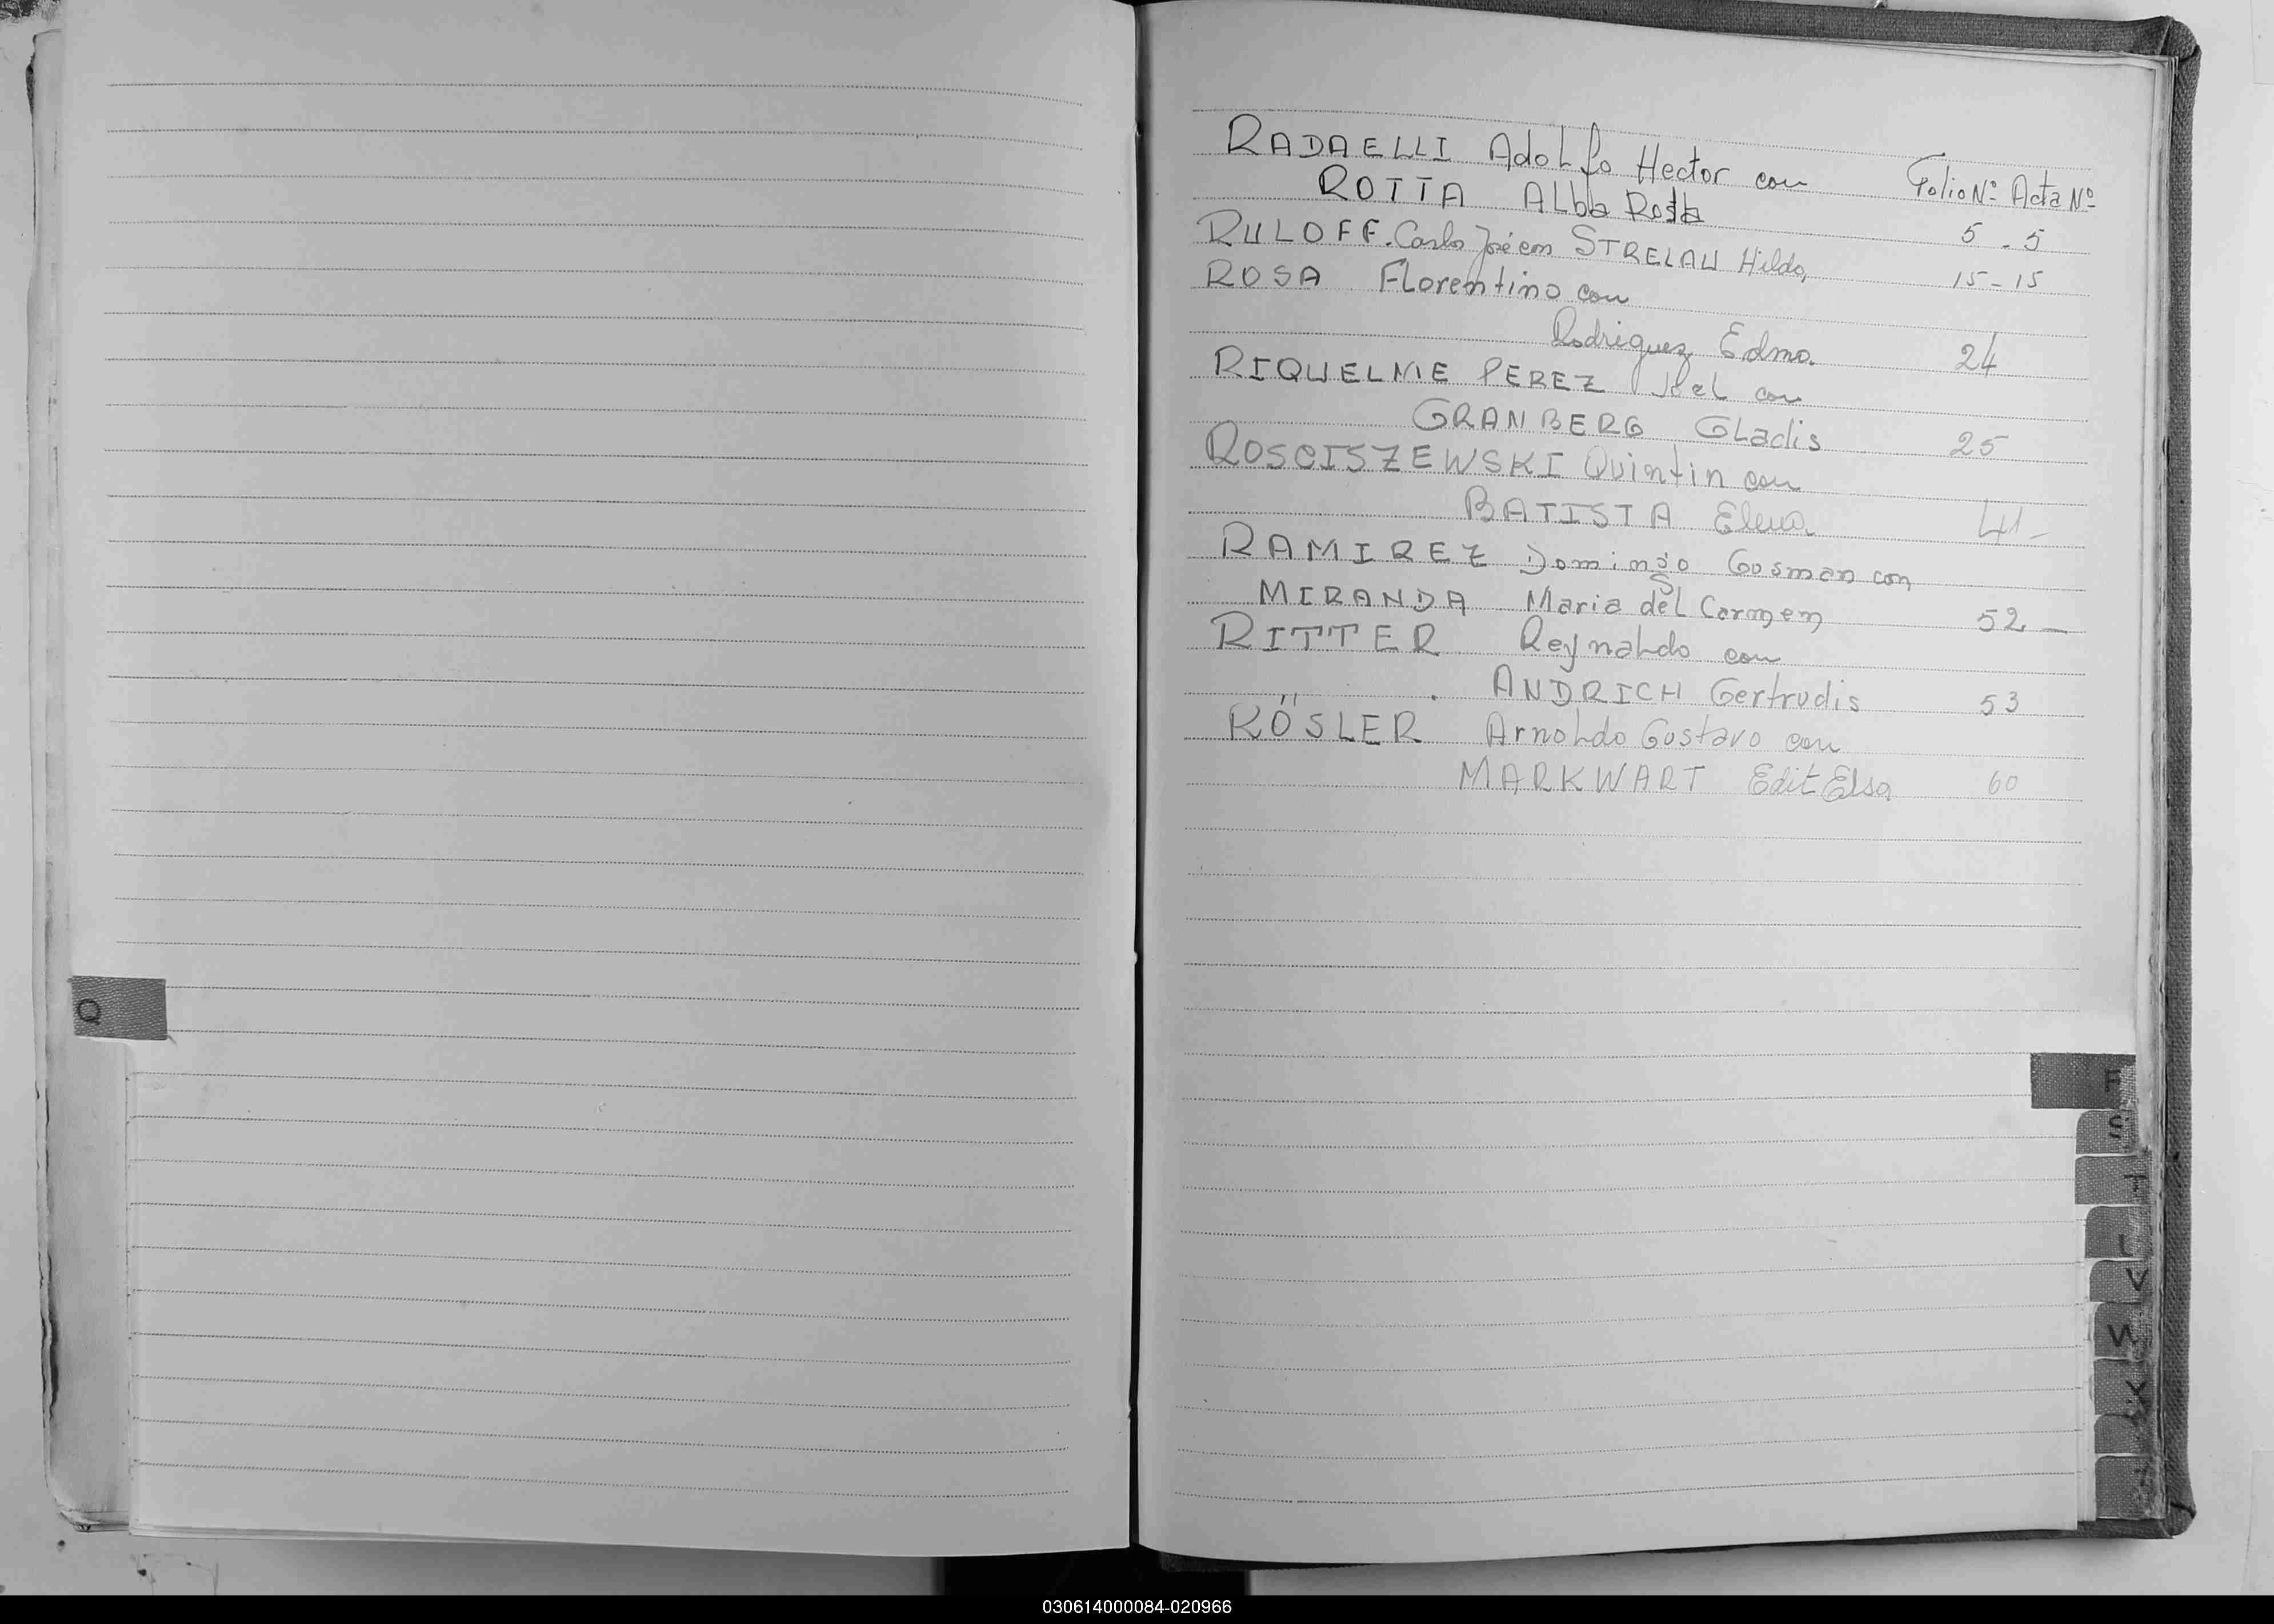 RADAELLI Adolfo Hector con
Folio Nº Acta Nº
ROTTA Alba Rosa
5 - 5
RULOFF. Carlo José con STRELAU Hilda,
15 - 15
ROSA Florentino con
Rodriguez Edma.
24
RIQUELME PEREZ Joel con
GRANBERG Gladis
25
ROSCISZEWSKI Quintin con
BATISTA Elena
41 -
RAMIREZ Domingo Gosman con
MIRANDA Maria del Carmen
52 -
RITTER Reynaldo con
ANDRICH Gertrudis
53
RÖSLER Arnoldo Gustavo con
MARKWART Edit Elsa
60
Q
S
T
V
W
X
030614000084-020966